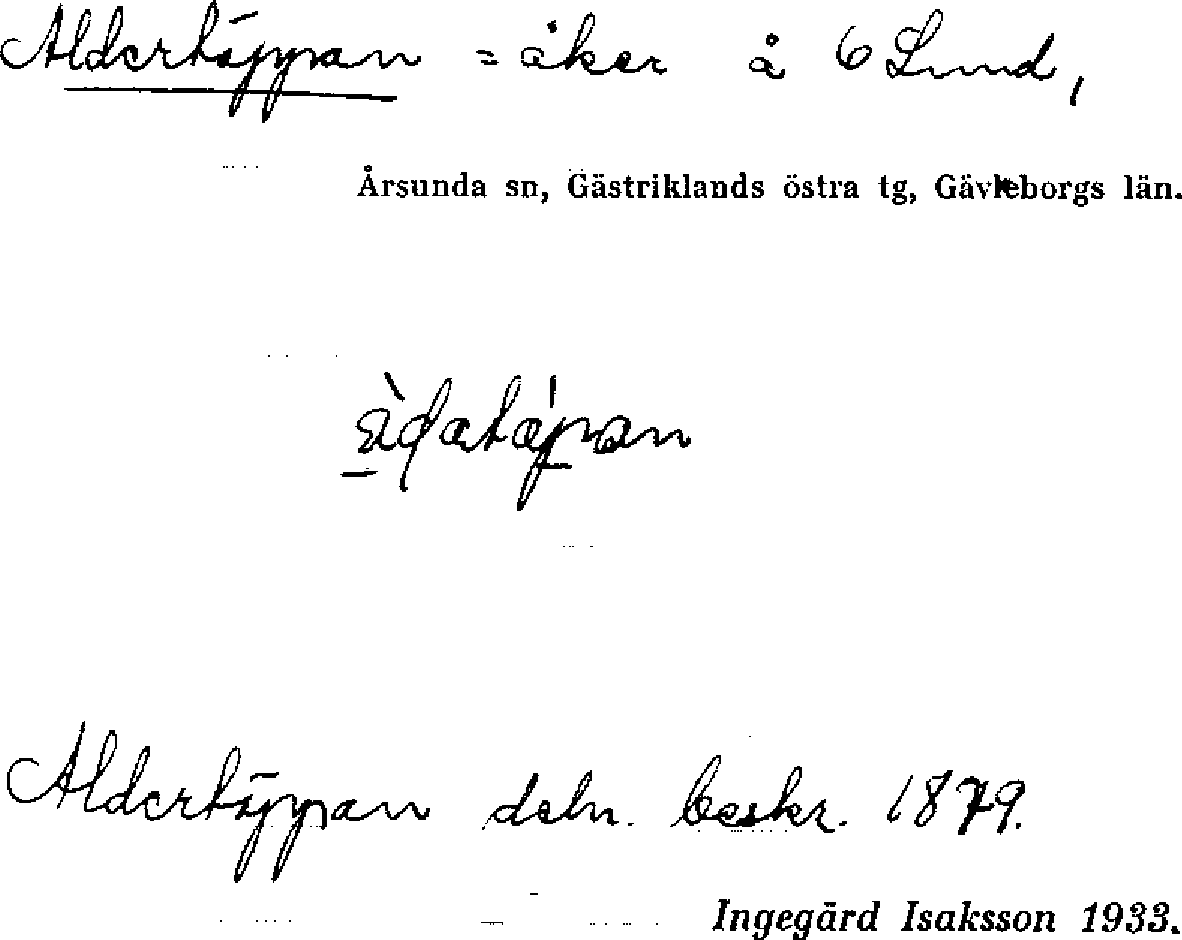 Aldertäppan = åker å 6 Lund,
Årsunda sn, Gästriklands östra tg, Gävleborgs län.
Aldertäppan deln. beskr. 1879.
Ingegärd Isaksson 1933.